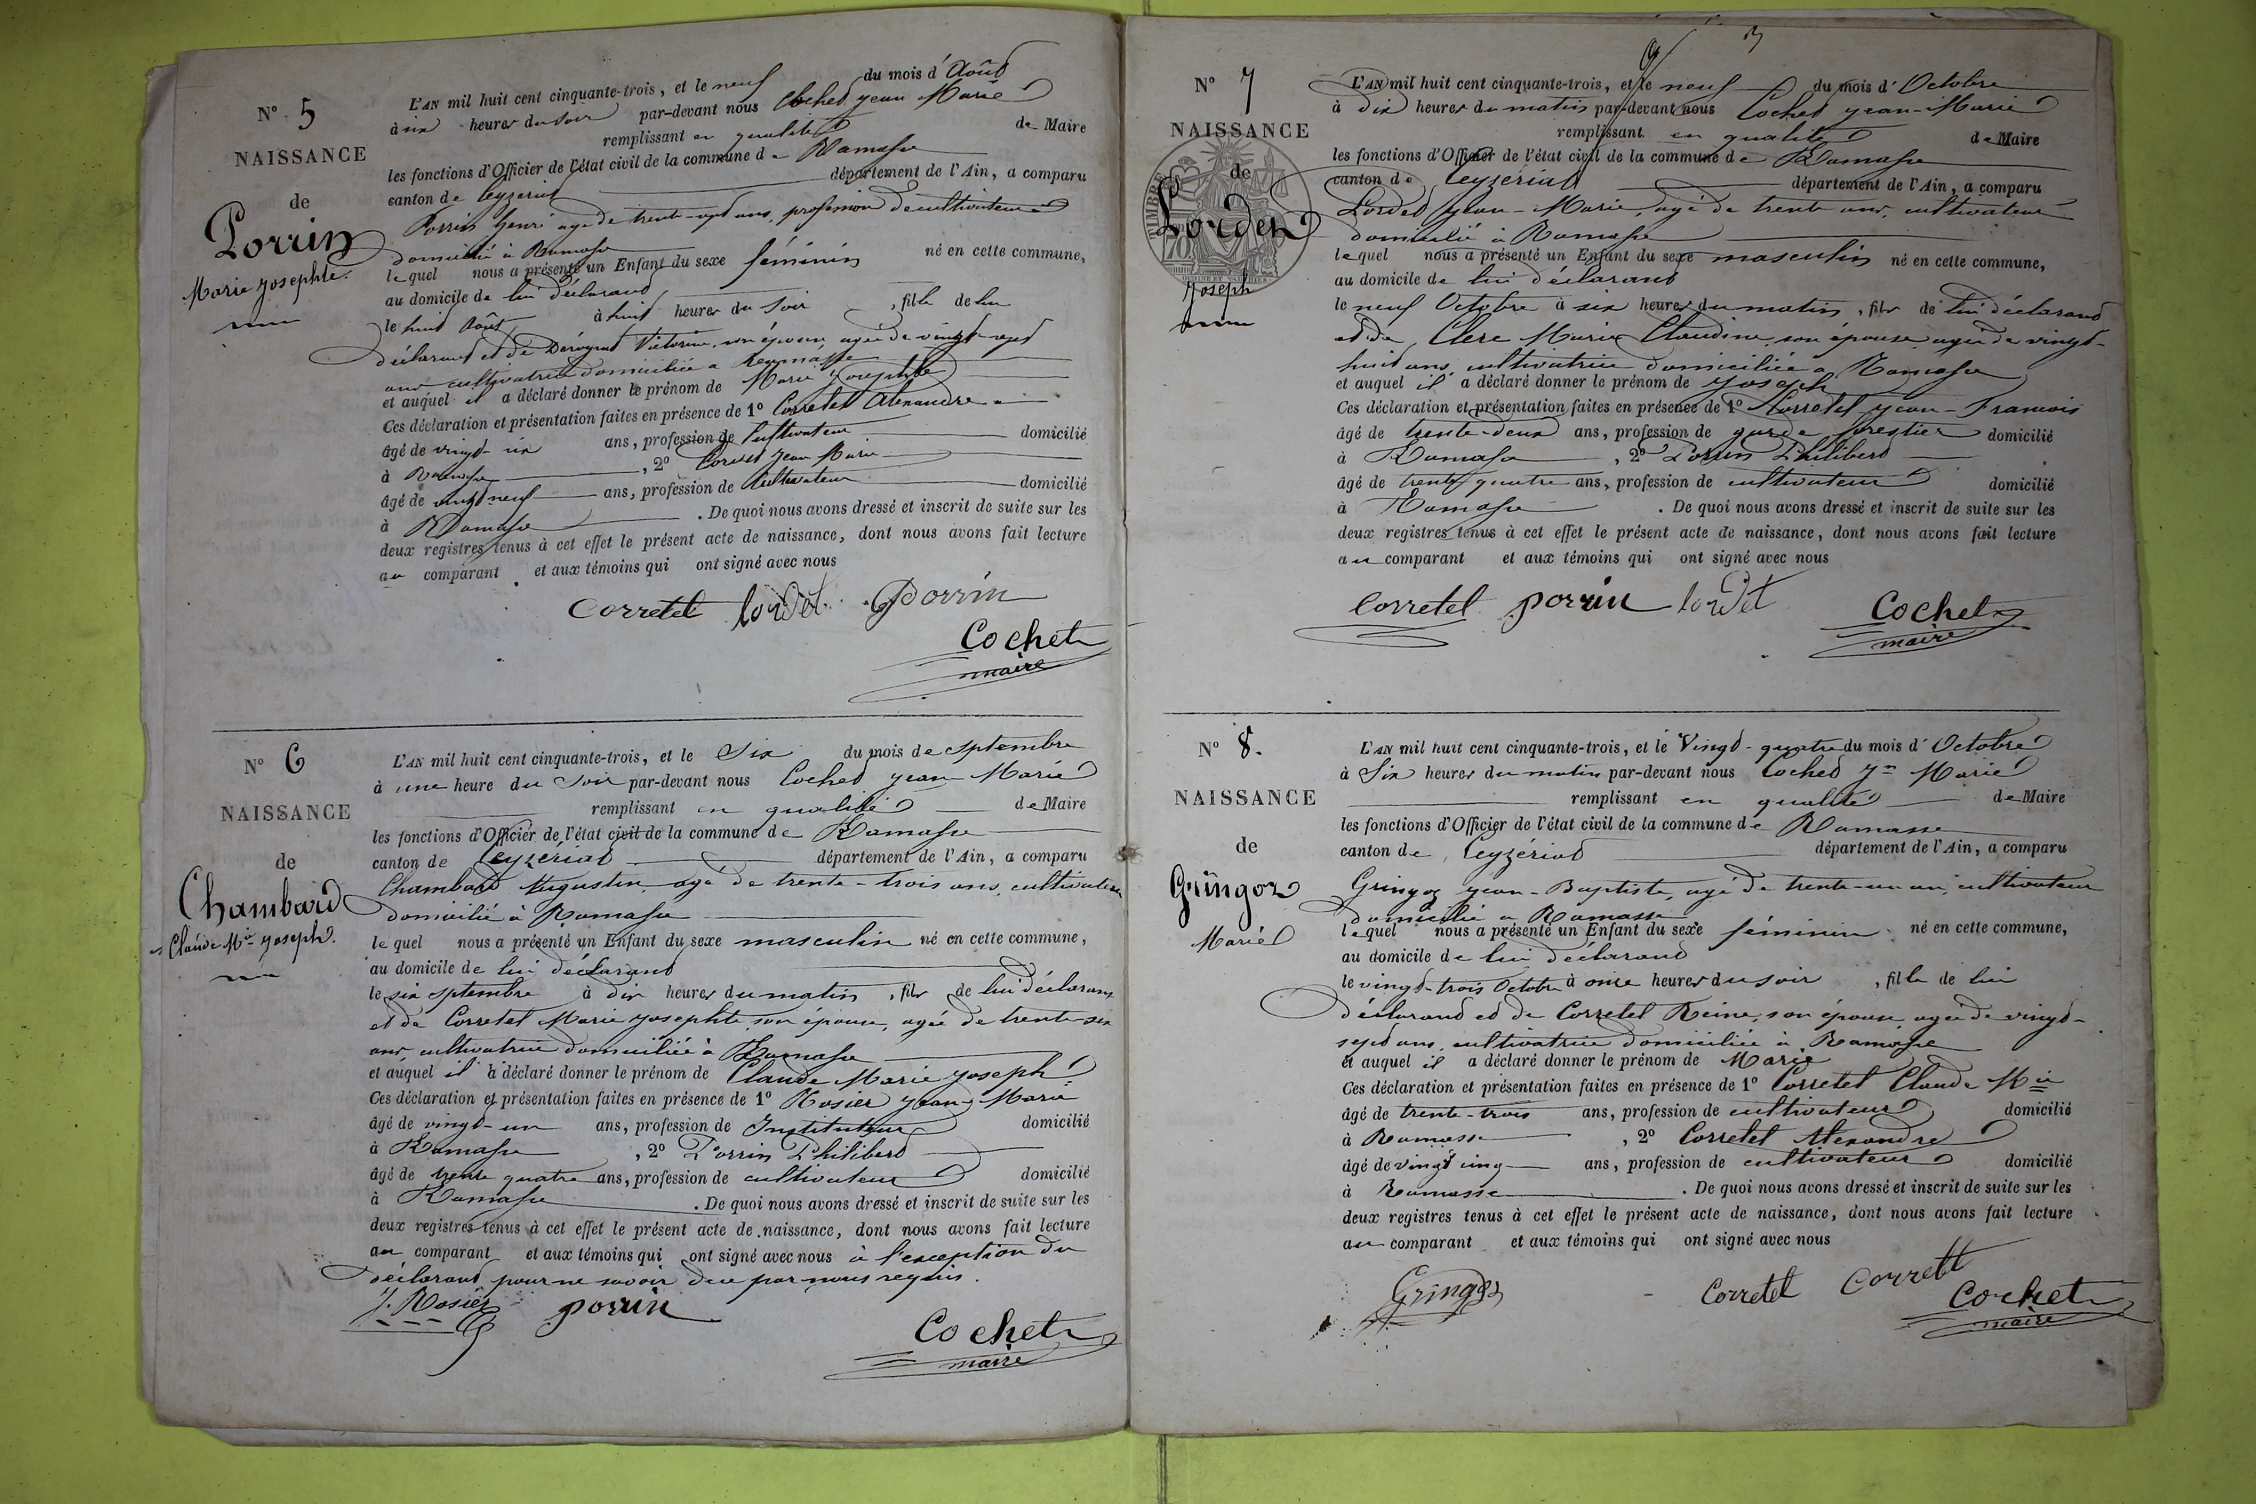 N° 5
NAISSANCE
de
Porrin
Marie Josephte.
L'AN mil huit cent cinquante-trois, et le neuf du mois d'Août
à six heures du soir par-devant nous Cochet Jean Marie
remplissant en qualité de Maire
les fonctions d'Officier de l'état civil de la commune de Ramasse
canton de Ceyzériat département de l'Ain, a comparu
Porrin henri agé de trente-sept ans, profession de cultivateur
domicilié à Ramasse
lequel nous a présenté un Enfant du sexe féminin né en cette commune,
au domicile de lui déclarant
le huit Août à huit heures du soir, fille de lui
déclarant et de Victorine, son épouse agée de vingt-sept
ans cultivatrice domiciliée à Ramasse
et auquel il a déclaré donner le prénom de Marie Josephte
Ces déclaration et présentation faites en présence de 1° Corretel Alexandre
âgé de vingt-six ans, profession de Cultivateur domicilié
à Ramasse, 2° Lordet Jean Marie
âgé de vingt neuf ans, profession de Cultivateur domicilié
à Ramasse. De quoi nous avons dressé et inscrit de suite sur les
deux registres tenus à cet effet le présent acte de naissance, dont nous avons fait lecture
au comparant et aux témoins qui ont signé avec nous
Corretel lordet Porrin
Cochet
maire
N° 6
NAISSANCE
de
Chambard
Claude Mie Joseph.
L'AN mil huit cent cinquante-trois, et le Six du mois de Sptembre
à une heure du Soir par-devant nous Cochet Jean Marie
remplissant en qualité de Maire
les fonctions d'Officier de l'état civil de la commune de Ramasse
canton de Ceyzériat département de l'Ain, a comparu
Chambard Augustin agé de trente-trois ans, cultivateur
domicilié à Ramasse
lequel nous a présenté un Enfant du sexe masculin né en cette commune,
au domicile de lui déclarant
le six sptembre à dix heures du matin, fils de lui déclarant
et de Corretel Marie Josephte son épouse, agée de trente-six
ans, cultivatrice domiciliée à Ramasse
et auquel il a déclaré donner le prénom de Claude Marie Joseph
Ces déclaration et présentation faites en présence de 1° Rosier Jean-Marie
âgé de vingt-un ans, profession de Instituteur domicilié
à Ramasse, 2° Porrin Philibert
âgé de trente quatre ans, profession de cultivateur domicilié
à Ramasse. De quoi nous avons dressé et inscrit de suite sur les
deux registres tenus à cet effet le présent acte de naissance, dont nous avons fait lecture
au comparant et aux témoins qui ont signé avec nous à l'exception du
déclarant pour ne savoir de ce par nous requis.
J. Rosier porrin
Cochet
maire
3
N° 7
NAISSANCE
de
Lordet
Joseph
L'AN mil huit cent cinquante-trois, et le neuf du mois d'Octobre
à dix heures du matin par-devant nous Cochet Jean-Marie
remplissant en qualité de Maire
les fonctions d'Officier de l'état civil de la commune de Ramasse
canton de Ceyzériat département de l'Ain, a comparu
Lordet Jean-Marie, agé de trente ans, cultivateur
domicilié à Ramasse
lequel nous a présenté un Enfant du sexe masculin né en cette commune,
au domicile de lui déclarant
le neuf Octobre à six heures du matin, fils de lui déclarant
et de Clerc Marie Claudine, son épouse agée de vingt-
huit ans, cultivatrice domiciliée à Ramasse
et auquel il a déclaré donner le prénom de Joseph
Ces déclaration et présentation faites en présence de 1° Corretel Jean-Francois
âgé de trente-deux ans, profession de garde forestier domicilié
à Ramasse, 2° Porrin Philibert
âgé de trente quatre ans, profession de cultivateur domicilié
à Ramasse. De quoi nous avons dressé et inscrit de suite sur les
deux registres tenus à cet effet le présent acte de naissance, dont nous avons fait lecture
au comparant et aux témoins qui ont signé avec nous
Corretel porrin lordet
Cochet
maire
N° 8.
NAISSANCE
de
Gringoz
Marie
L'AN mil huit cent cinquante-trois, et le Vingt-quatre du mois d'Octobre
à Six heures du matin par-devant nous Cochet Jn Marie
remplissant en qualité de Maire
les fonctions d'Officier de l'état civil de la commune de Ramasse
canton de Ceyzériat département de l'Ain, a comparu
Gringoz Jean-Baptiste, agé de trente-un an, cultivateur
domicilié a Ramasse
lequel nous a présenté un Enfant du sexe féminin né en cette commune,
au domicile de lui déclarant
le vingt-trois Octobre à onze heures du soir, fille de lui
déclarant et de Corretel Reine, son épouse agée de vingt-
sept ans, cultivatrice domiciliée à Ramasse
et auquel il a déclaré donner le prénom de Marie
Ces déclaration et présentation faites en présence de 1° Corretel Claude Mie
âgé de trente-trois ans, profession de cultivateur domicilié
à Ramasse, 2° Corretel Alexandre
âgé de vingt cinq ans, profession de cultivateur domicilié
à Ramasse. De quoi nous avons dressé et inscrit de suite sur les
deux registres tenus à cet effet le présent acte de naissance, dont nous avons fait lecture
au comparant et aux témoins qui ont signé avec nous
Gringoz Corretel Corretel
Cochet
maire